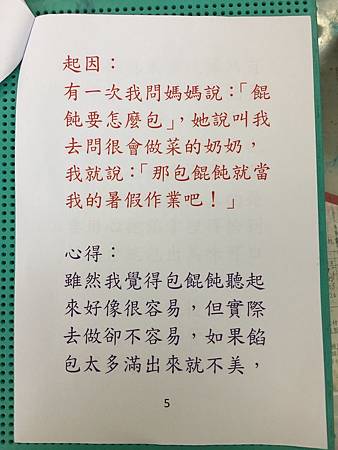 起因：
有一次我問媽媽說：「餛
飩要怎麼包」，她說叫我
去問很會做菜的奶奶，
我就說：「那包餛飩就當
我的暑假作業吧！」
心得：
雖然我覺得包餛飩聽起
來好像很容易，但實際
去做卻不容易，如果餡
包太多滿出來就不美，
5